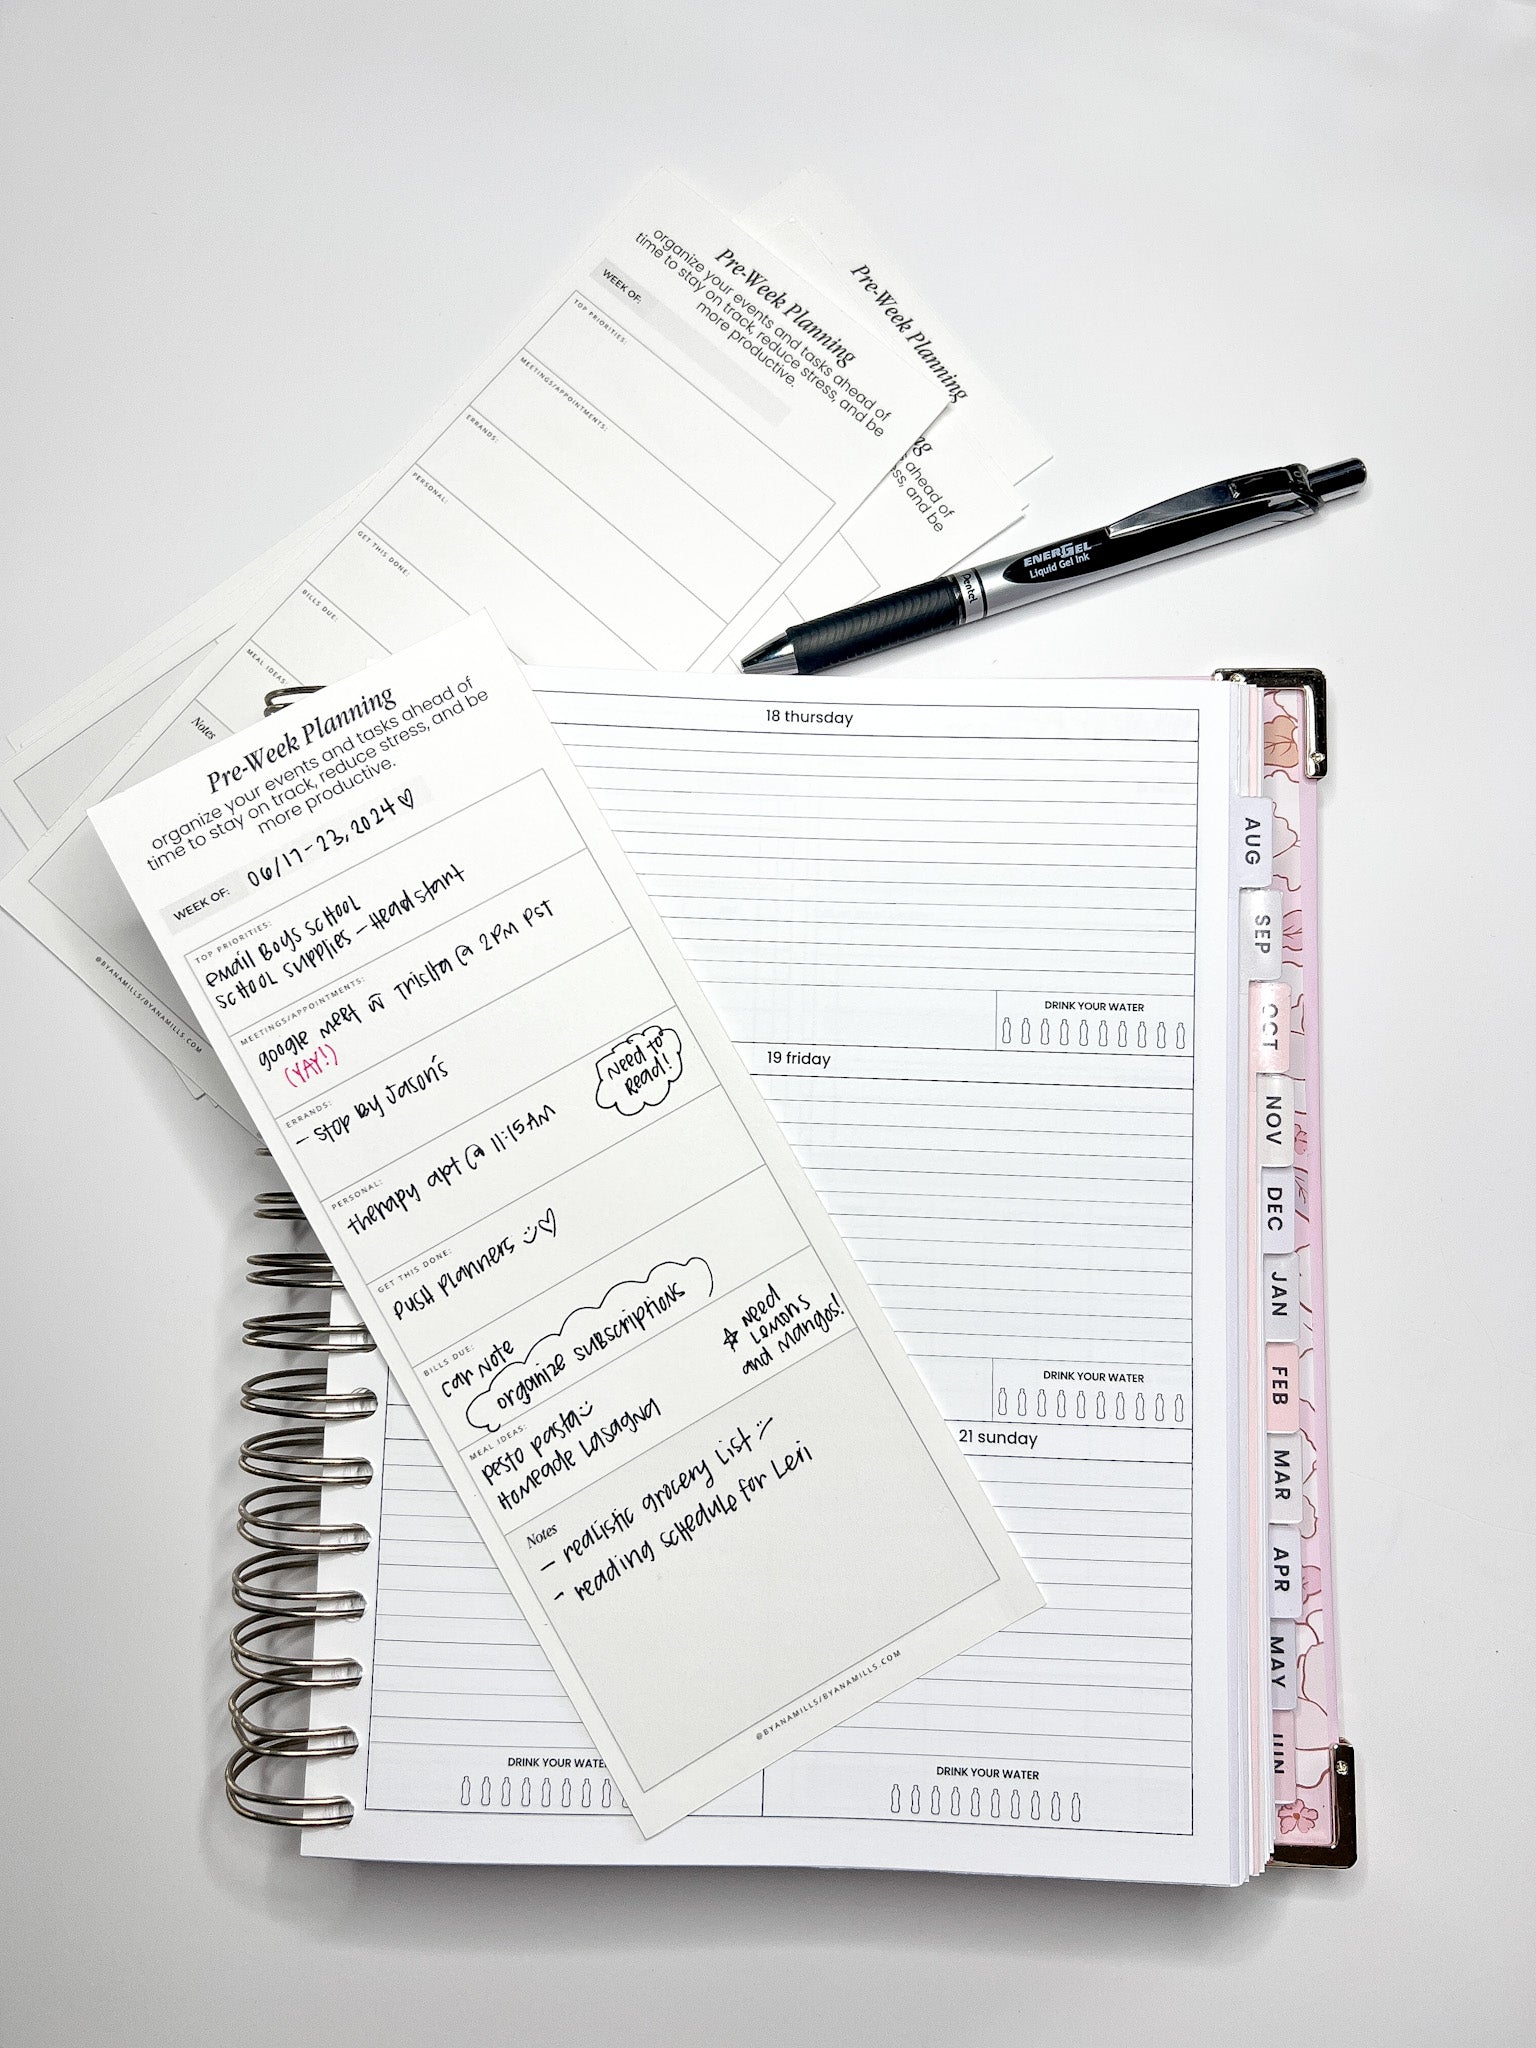 Pre-Week Planning
Pre-Week Planning
organize your events and tasks ahead of
time to stay on track, reduce stress, and be
more productive.
WEEK OF:
TOP PRIORITIES:
MEETINGS/APPOINTMENTS:
ERRANDS:
PERSONAL:
GET THIS DONE:
BILLS DUE:
MEAL IDEAS:
Notes
ng
s ahead of
ss, and be
@BYANAMILLS/BYANAMILLS.COM
ENERGEL
Liquid Gel Ink
Pentel
Pre-Week Planning
organize your events and tasks ahead of
time to stay on track, reduce stress, and be
more productive.
WEEK OF: 06/17-23, 2024 ♡
TOP PRIORITIES:
email Boys School
School Supplies - Headstart
MEETINGS/APPOINTMENTS:
google meet w Trisha @ 2PM PST
(YAY!)
ERRANDS:
- Stop By Jason's
Need to
Read!
PERSONAL:
therapy apt @ 11:15AM
GET THIS DONE:
push planners ♡
BILLS DUE:
car note
organize subscriptions
MEAL IDEAS:
pesto pasta
Homeade Lasagna
☆ Need
Lemons
and Mangos!
Notes
- realistic grocery list
- reading schedule for Leri
@BYANAMILLS/BYANAMILLS.COM
18 thursday
DRINK YOUR WATER
19 friday
DRINK YOUR WATER
21 sunday
DRINK YOUR WATE
DRINK YOUR WATER
AUG
SEP
OCT
NOV
DEC
JAN
FEB
MAR
APR
MAY
JUN